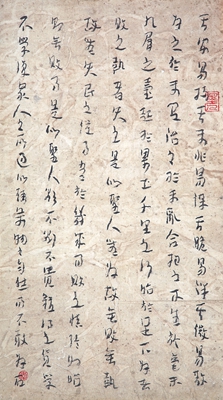 其安易持其未兆易謀其脆易其微易散
為之於未有治之於未亂合抱之木生於毫末
九層之臺起於累土千里之行始於足下為者
敗之執者失之是以聖人無為故無敗無執
故無失民之從事常於幾成而敗之慎終如始
則無敗事是以聖人欲不欲不貴難得之貨學
不學復眾人之所過以輔萬物之自然而不敢為